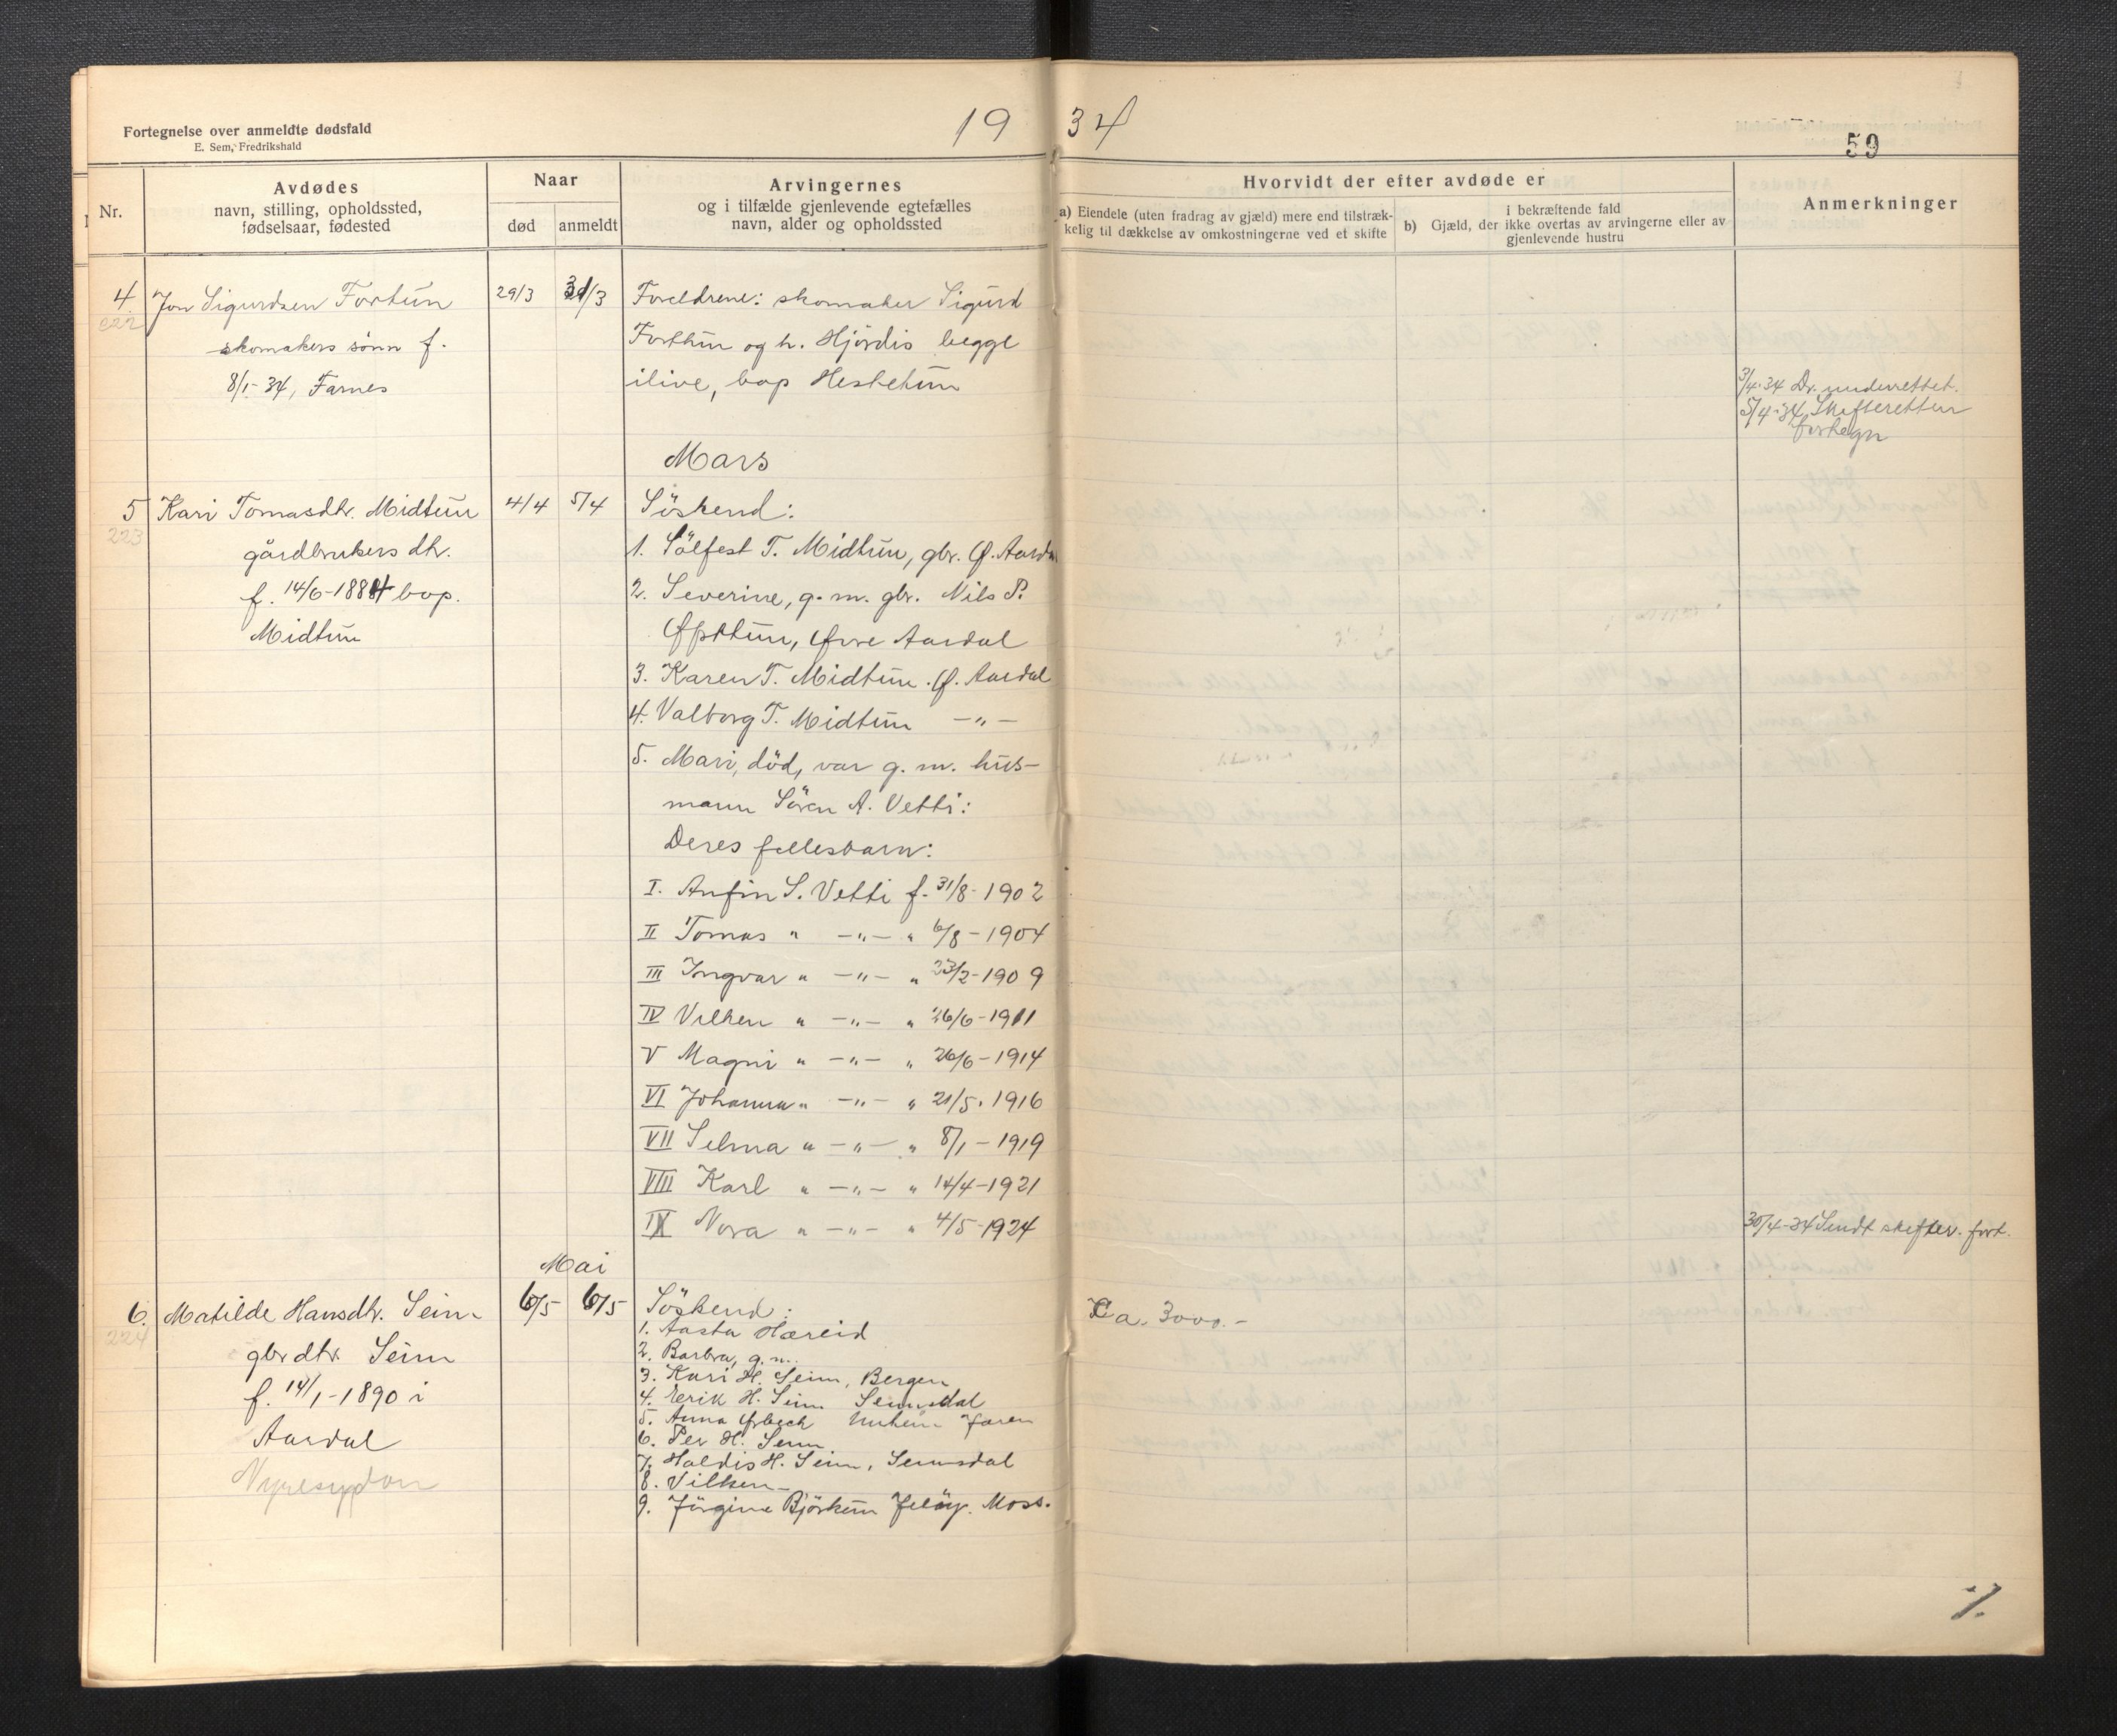 Fortegnelse over anmeldte dødsfald
E. Sem, Fredrikshald
19 34
59
Nr.
Avdødes
navn, stilling, opholdssted,
fødselsaar, fødested
Naar
død
anmeldt
Arvingernes
og i tilfælde gjenlevende egtefælles
navn, alder og opholdssted
Hvorvidt der efter avdøde er
a) Eiendele (uten fradrag av gjæld) mere end tilstræk-
kelig til dækkelse av omkostningerne ved et skifte
b) Gjæld, der i bekræftende fald
ikke overtas av arvingerne eller av
gjenlevende hustru
Anmerkninger
4.
222
Jon Sigurdsen Fortun
skomakers sønn f.
8/1-34, Farnes
29/3
31/3
Foreldrene: skomaker Sigurd
Forthun og h. Hjördis begge
ilive, bop Hestetun
3/4-34 Dr. underrettet.
5/4-34 Skifteretten
fortegn
Mars
5
223
Kari Tomasdtr. Midtun
gårdbrukers dtr.
f. 14/6-1884 bop.
Midtun
4/4
5/4
Söskend:
1. Sölfest T. Midtun, gbr. Ø. Aardal
2. Severine, g. m. gbr. Nils P.
Øpstun, Øvre Aardal
3. Karen T. Midtun. Ø. Aardal
4. Valborg T. Midtun -"-
5. Mari, död, var g. m. hus-
mann Sören A. Vetti:
Deres fellesbarn:
I. Anfin S. Vetti f. 31/8-1902
II Tomas " -"- " 6/8-1904
III Ingvar " -"- " 23/2-1909
IV Vilken " -"- " 26/6-1911
V Magni " -"- " 26/6-1914
VI Johanna " -"- " 21/5. 1916
VII Selma " -"- " 8/1-1919
VIII Karl " -"- " 14/4-1921
IX Nora " -"- " 4/5-1924
30/4-34 Sendt skifter. fort.
Mai
6.
224
Matilde Hansdtr. Seim
gbrdtr. Seim
f. 14/1-1890 i
Aardal
6/5
6/5
Söskend:
1. Aasta Hæreid
2. Barbra, g.m.
3. Kari H. Seim, Bergen
4. Erik H. Seim Seimsdal
5. Anna
6. Per H. Seim
7. Haldis H. Seim, Seimsdal
8. Vilken -
9. Jörgine Björkum Jelöy. Moss.
Ca. 3000.-